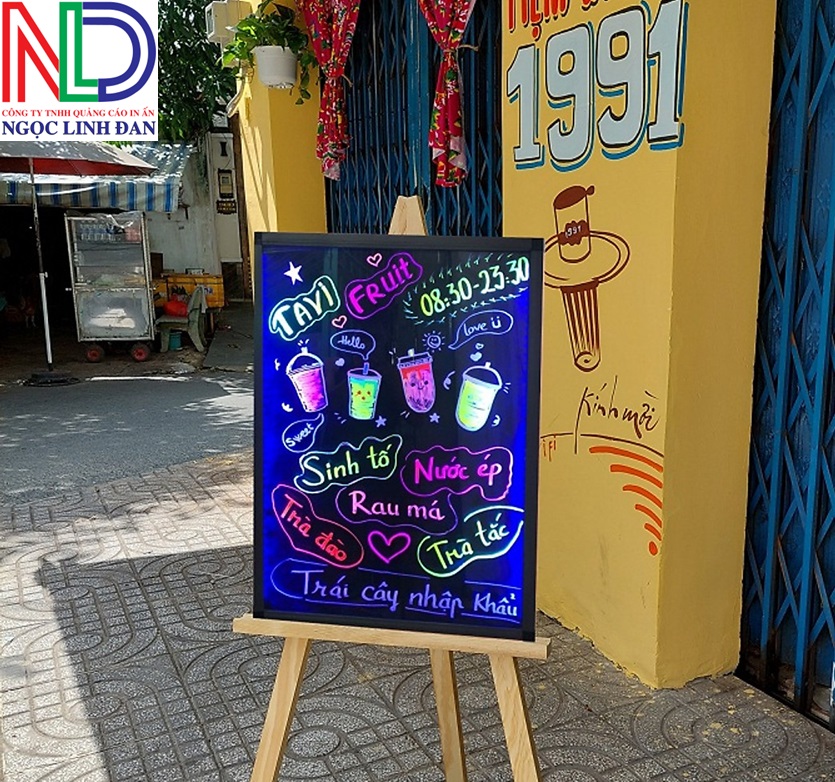 NLD
CÔNG TY TNHH QUẢNG CÁO IN ẤN
NGỌC LINH ĐAN
TIỆM
1991
1991
Kính mời
TAVI
Fruit
08:30-23:30
Hello
love
Sweet
Sinh tố
Nước ép
Rau má
Trà đào
Trà tắc
Trái cây nhập khẩu